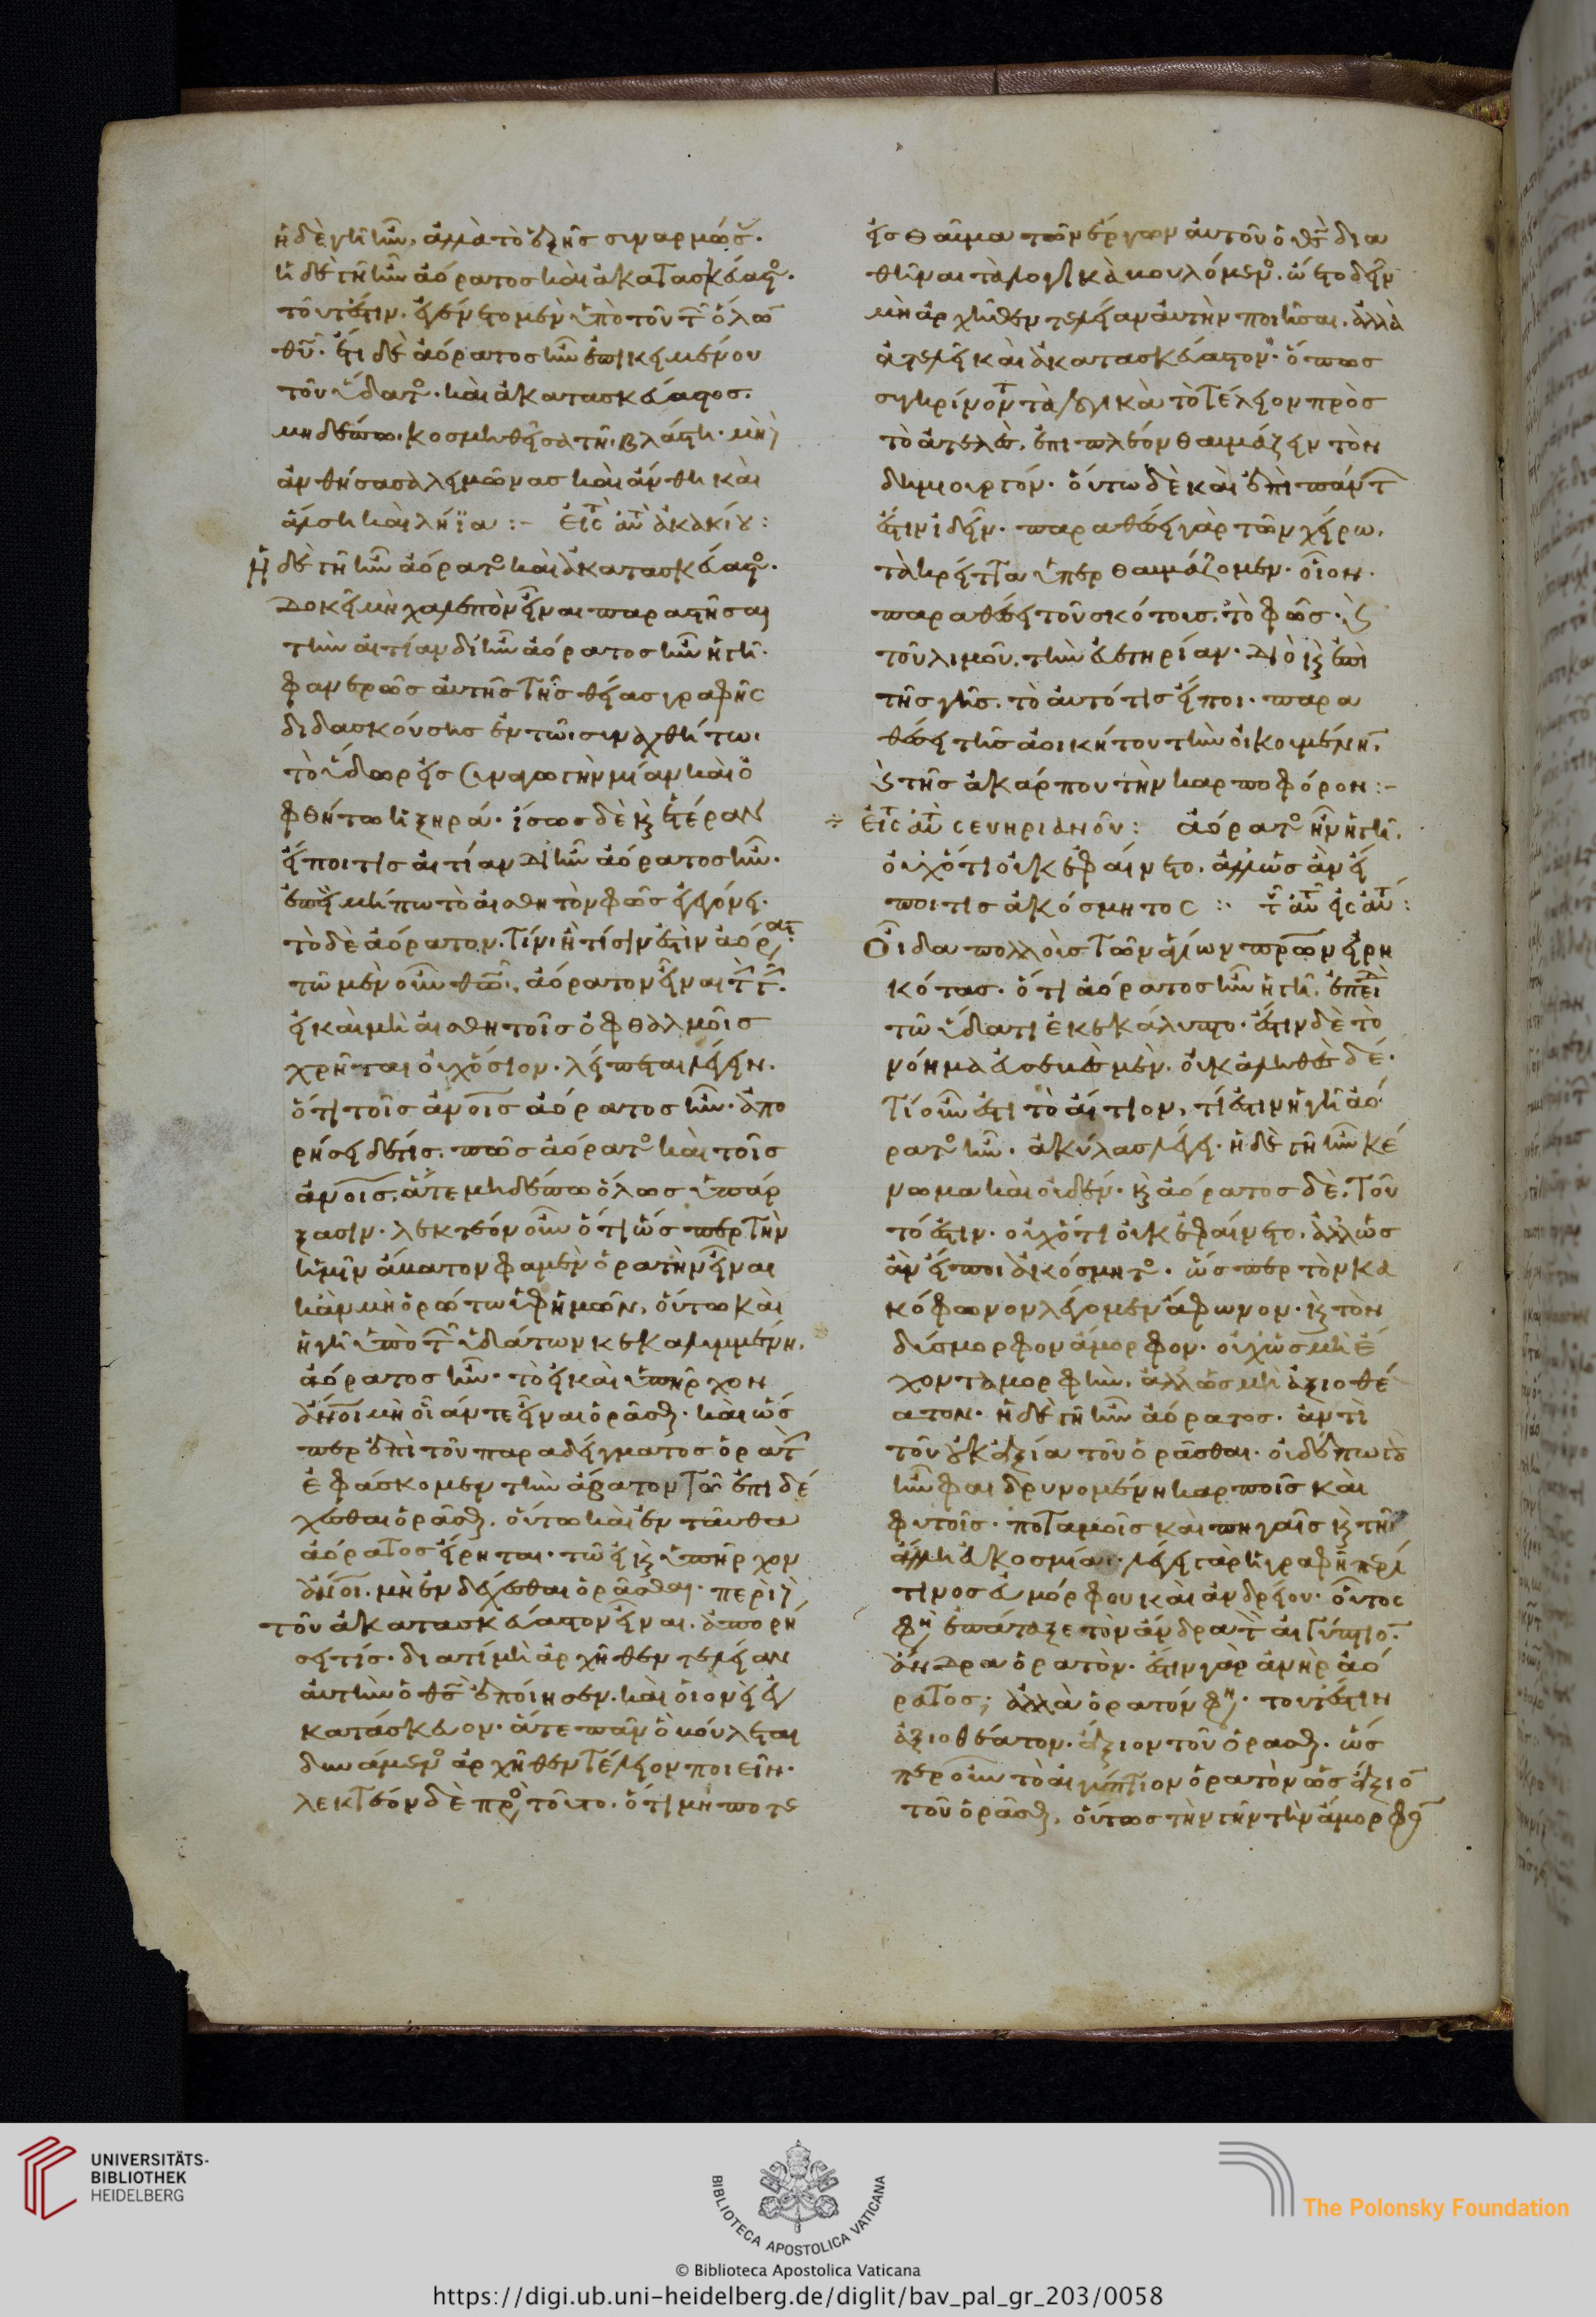 ἡ δὲ γῆ ἦν, ἀλλὰ τὸ ἑξῆς συναρμόσ
ἡ δὲ γῆ ἦν ἀόρατος καὶ ἀκατασκεύαστο
τουτέστιν. ἐγένετο μὲν ὑπὸ τοῦ τ ὅλω
θῦ. ἔτι δὲ ἀόρατος ἦν ἐπικειμένου
τοῦ ὕδατο. καὶ ἀκατασκεύαστος.
μηδέπω κοσμηθεῖσα τῆ βλάστη. μὴ
ἀνθήσασα λειμῶνας καὶ ἄνθη καὶ
ἄλση καὶ λήϊα :- εἰς τ αὐτ ἀκακίου :
Ἡ δὲ γῆ ἦν ἀόρατο καὶ ἀκατασκεύαστο.
Δοκεῖ μὴ χαλεπὸν εἶναι παραστῆσαι
τὴν αἰτίαν δι' ἣν ἀόρατος ἦν ἡ γῆ.
φανερῶς αὐτῆς τῆς θείας γραφῆς
διδασκούσης ἐν τῶ συναχθήτω
τὸ ὕδωρ εἰς συναγωγὴν μίαν καὶ ὀ
φθήτω ἡ ξηρά. ἴσως δὲ κ ἑτέραν
εἴποι τις αἰτίαν δι' ἣν ἀόρατος ἦν.
ἐπεὶ μήπω τὸ αἰσθητὸν φῶς ἐγεγόνει.
τὸ δὲ ἀόρατον. τίνι ἢ τίσιν ἐστὶν ἀόρατ
τῶ μὲν οὖν θῶ, ἀόρατον εἶναι τ γ.
εἰ καὶ μὴ αἰσθητοῖς ὀφθαλμοῖς
χρῆται οὐχ ὅσιον. λείπεται λέγειν.
ὅτι τοῖς ἀνοις ἀόρατος ἦν. ἀπο
ρήσει δέ τις. πῶς ἀόρατο καὶ τοῖς
ἀνοις, ἅτε μηδέπω ὅλως ὑπάρ
ξασιν. λεκτέον οὖν ὅτι ὥσπερ τὴν
ἡμῖν ἄβατον φαμὲν ὁρατὴν εἶναι
κἂν μὴ ὁρῶτο ὑφ' ἡμῶν, οὕτω καὶ
ἡ γῆ ὑπὸ τ ὑδάτων κεκαλυμμένη.
ἀόρατος ἦν. τὸ εἰ καὶ ὑπῆρχον
ἄνοι μὴ οἵαν τε εἶναι ὁρᾶσθ. καὶ ὥσ
περ ἐπὶ τοῦ παραδείγματος ὁρατ
ἐφάσκομεν τὴν ἄβατον τῶ ἐπιδέ
χεσθαι ὁρᾶσθ. οὕτω καὶ ἐνταῦθα
ἀόρατος εἴρηται. τῶ εἰ κ ὑπῆρχον
ἄνοι. μὴ ἐνδέχεσθαι ὁρᾶσθαι. περὶ
τοῦ ἀκατασκεύαστον εἶναι. ἀπορή
σει τίς. διατί μὴ ἀρχῆθεν τελείαν
αὐτὴν ὁ θς ἐποίησεν. καὶ οἱονεὶ εὐ
κατάσκευον. ἅτε πᾶν ὃ βούλεται
δυνάμενο ἀρχῆθεν τέλειον ποιεῖν.
λεκτέον δὲ πρὸ τοῦτο. ὅτι μήποτε
εἰς θαῦμα τῶν ἔργων αὐτοῦ ὁ θς δια
θῆναι τὰ λογικὰ βουλόμενο. ὤετο δεῖν
μὴ ἀρχῆθεν τελείαν αὐτὴν ποιῆσαι. ἀλλὰ
ἀτελῆ καὶ ἀκατασκεύαστον. ὅπως
συγκρίνοντ τὰ λογικὰ τὸ τέλειον πρὸς
τὸ ἀτελὲς, ἐπιπλέον θαυμάζειν τὸν
δημιουργόν. οὕτω δὲ καὶ ἐπὶ πάντ
ἔστιν ἰδεῖν. παραθέσει γὰρ τῶν χείρω.
τὰ κρείττα ὑπερθαυμάζομεν. οἷον.
παραθέσει τοῦ σκότους. τὸ φῶς. κ
τοῦ λιμοῦ. τὴν εὐετηρίαν. Διὸ κ ἐπὶ
τῆς γῆς. τὸ αὐτό τις εἴποι. παρα
θέσει τῆς ἀοικήτου τὴν οἰκουμένην.
κ τῆς ἀκάρπου τὴν καρποφόρον :-
εἰς τ αὐτ σευηριανοῦ : ἀόρατο ἦν ἡ γῆ.
οὐχ ὅτι οὐκ ἐφαίνετο. ἀλλ' ὡς ἂν εἴ
ποι τις ἀκόσμητος :. τ αὐτ εἰς αὐτ :
Οἶδα πολλοὺς τῶν ἁγίων πρων εἰρη
κότας. ὅτι ἀόρατος ἦν ἡ γῆ. ἐπειδὴ
τῶ ὕδατι ἐκεκάλυπτο. ἔστιν δὲ τὸ
νόημα εὐσεβὲς μὲν. οὐκ ἀληθὲς δέ.
Τί οὖν ἐστι τὸ αἴτιον, τί ἐστιν ἡ γῆ ἀό
ρατο ἦν. ἀκύλας λέγει. ἡ δὲ γῆ ἦν κέ
νωμα καὶ οὐδέν. κ ἀόρατος δὲ. τοῦ
τό ἐστιν. οὐχ ὅτι οὐκ ἐφαίνετο. ἀλλ' ὡς
ἂν εἴποι ἀκόσμητο. ὥσπερ τὸν κα
κόφωνον λέγομεν ἄφωνον. κ τὸν
δύσμορφον ἄμορφον. οὐχ ὡς μὴ ἔ
χοντα μορφὴν. ἀλλ' ὡς μὴ ἀξιοθέ
ατον. ἡ δὲ γῆ ἦν ἀόρατος. ἀντὶ
τοῦ οὐκ ἀξία τοῦ ὁρᾶσθαι. οὐδέπω γὰρ
ἦν φαιδρυνομένη καρποῖς καὶ
φυτοῖς. ποταμοῖς καὶ πηγαῖς κ τῆ
ἄλλη εὐκοσμία. λέγει γὰρ ἡ γραφὴ περί
τινος εὐμόρφου καὶ ἀνδρείου. οὗτος
φη ἐπάταξε τὸν ἄνδρα τ αἰγύπτιο.
ἄνδρα ὁρατὸν. ἔστιν γὰρ ἀνὴρ ἀό
ρατος; ἀλλὰ ὁρατόν φη. τουτέστιν
ἀξιοθέατον. ἄξιον τοῦ ὁρᾶσθ. ὥσ
περ οὖν τὸ αἰγύπτιον ὁρατὸν ὡς ἄξιο
τοῦ ὁρᾶσθ. οὕτως τὴν γῆν τὴν ἄμορφο
UNIVERSITÄTS-
BIBLIOTHEK
HEIDELBERG
BIBLIOTECA APOSTOLICA VATICANA
The Polonsky Foundation
© Biblioteca Apostolica Vaticana
https://digi.ub.uni-heidelberg.de/diglit/bav_pal_gr_203/0058